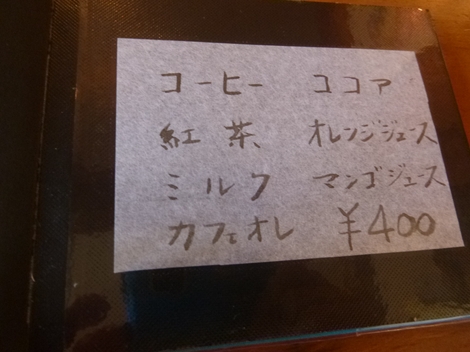 コーヒー ココア
紅茶 オレンジジュース
ミルク マンゴジュース
カフェオレ ¥400